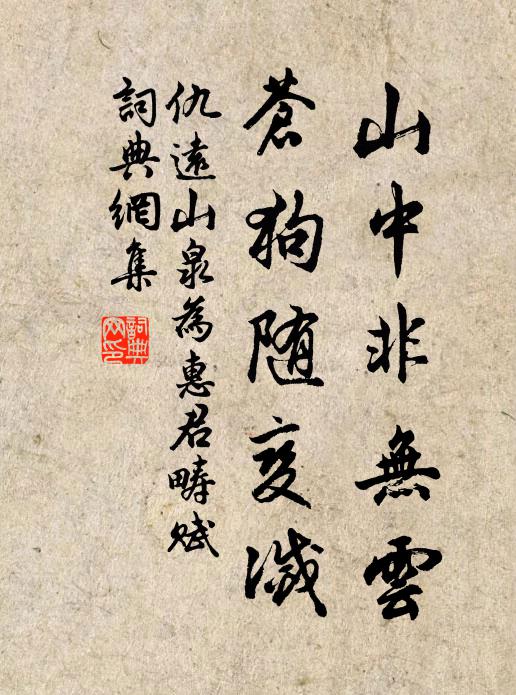 山中非無雲
蒼狗随变滅
仇遠山泉為惠君疇賦
詞典網集
詞典網印